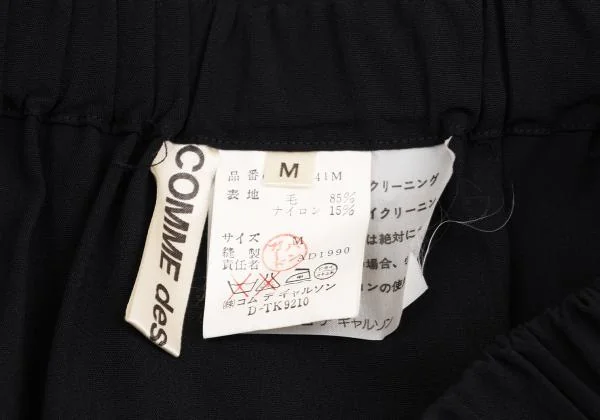 COMME des
M
品番 41M
表地 毛 85%
ナイロン 15%
サイズ M
縫製
責任者 AD1990
㈱コム デ ギャルソン
D-TK9210
クリーニング
イクリーニング
は絶対に
場合、
ンの使
ギャルソン